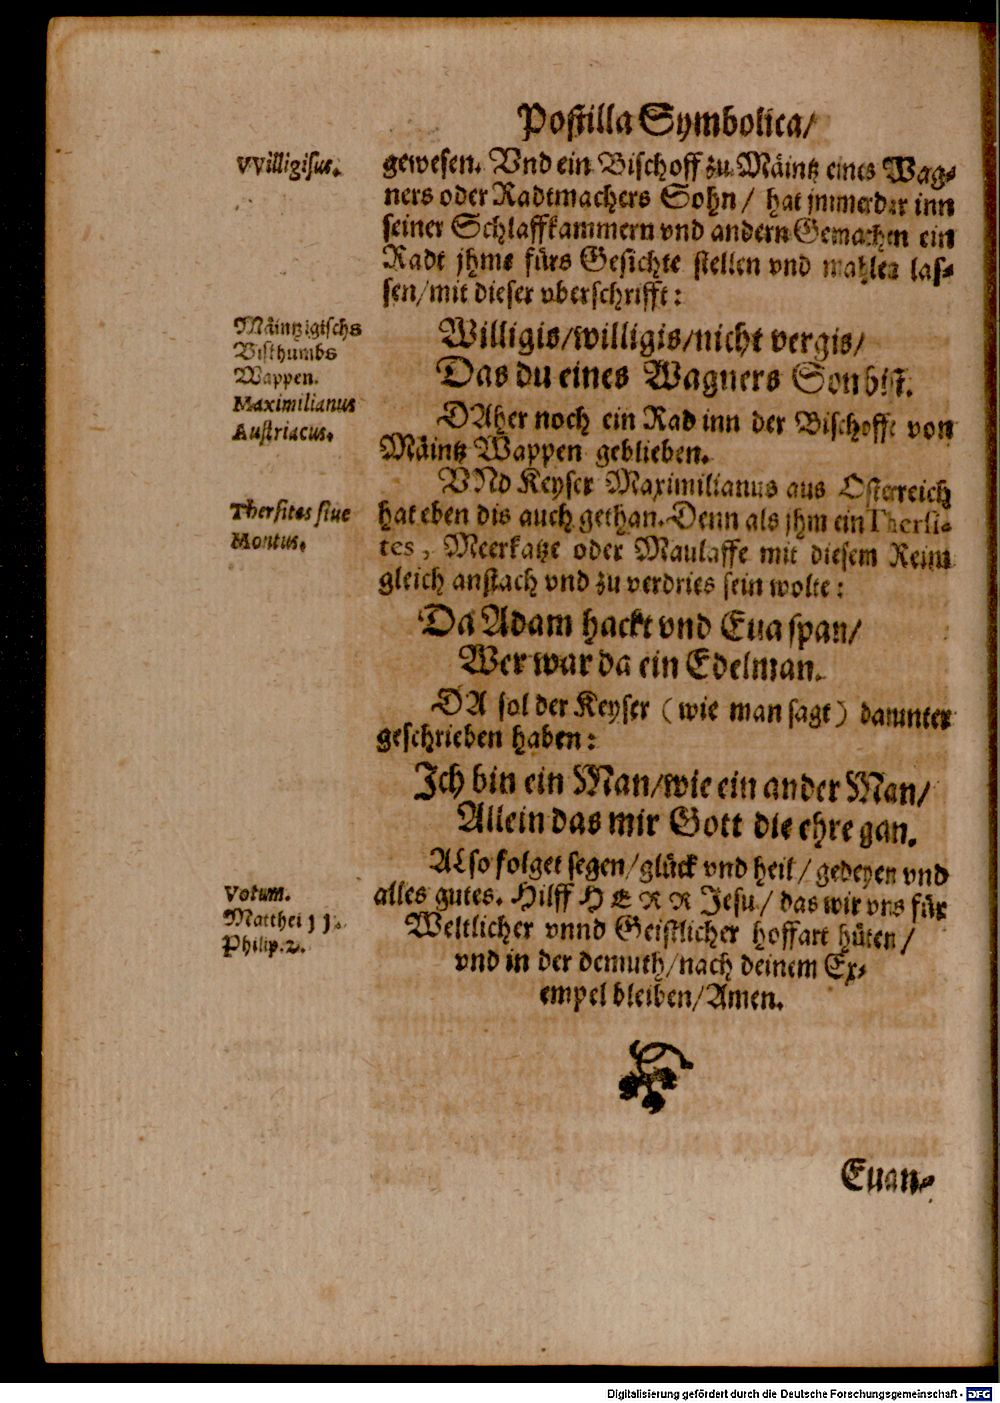 Postilla Symbolica/
VVilligisus.
gewesen. Vnd ein Bischoff zu Mäintz eines Wag-
ners oder Radtmachers Sohn / hat jmmerdar inn
seiner Schlaffkammern vnd andern Gemachen ein
Radt jhme fürs Gesichte stellen vnd mahlen las-
sen/mit dieser vberschrifft:
Mäintzigischs
Bisthumbs
Wappen.
Willigis/willigis/nicht vergis/
Das du eines Wagners Son bist.
Maximilianus
Austriacus.
DAher noch ein Rad inn der Bischoffe von
Mäintz Wappen geblieben.
VNd Keyser Maximilianus aus Osterreich
Thersites siue
Montus.
hat eben dis auch gethan. Denn als jhm ein Thersi-
tes, Meerkatze oder Maulaffe mit diesem Reim
gleich anstach vnd zu verdries sein wolte:
Da Adam hackt vnd Eua span/
Wer war da ein Edelman.
DA sol der Keyser (wie man sagt) darunter
geschrieben haben:
Ich bin ein Man/wie ein ander Man/
Allein das mir Gott die ehre gan.
ALso folget segen/glück vnd heil/ gedeyen vnd
Votum.
Matthei 11.
Philip.2.
alles gutes. Hilff HERR Jesu/ das wir vns für
Weltlicher vnnd Geistlicher hoffart hüten/
vnd in der demuth/nach deinem Ex-
empel bleiben/Amen.
Euan-
Digitalisierung gefördert durch die Deutsche Forschungsgemeinschaft - DFG